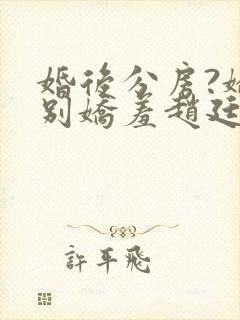 婚後分房?
別嬌羞趙廷
許平飛